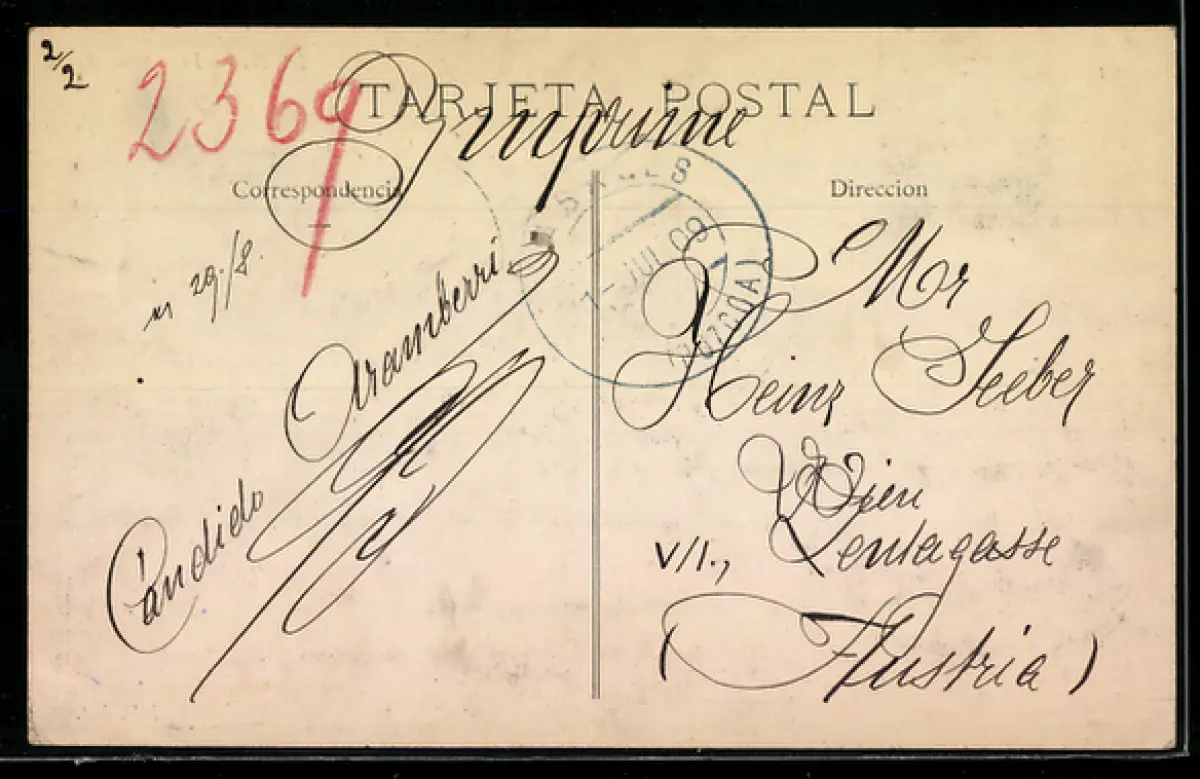 2/2
2369
TARJETA POSTAL
Imprime
Correspondencia
Direccion
29./8.
JUL 09
(GUIPUZCOA)
Candido Aramberri
Mr
Heinz Seeber
Wien
V/1., Zentagasse
(Austria)